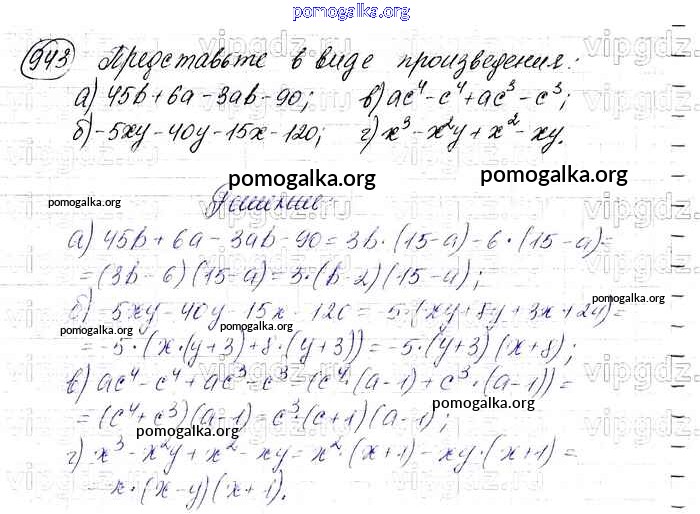 pomogalka.org
943 Представьте в виде произведения:
а) 45b+6a-3ab-90; в) ac⁴-c⁴+ac³-c³;
б) -5xy-40y-15x-120; г) x³-x²y+x²-xy.
pomogalka.org pomogalka.org
pomogalka.org Решение:
а) 45b+6a-3ab-90=3b·(15-a)-6·(15-a)=
=(3b-6)(15-a)=3·(b-2)(15-a);
б) -5xy-40y-15x-120=-5·(xy+8y+3x+24)=
pomogalka.org pomogalka.org pomogalka.org
=-5·(x·(y+3)+8·(y+3))=-5·(y+3)(x+8);
в) ac⁴-c⁴+ac³-c³=(c⁴·(a-1)+c³·(a-1))=
=(c⁴+c³)(a-1)=c³·(c+1)(a-1);
pomogalka.org pomogalka.org
г) x³-x²y+x²-xy=x²·(x+1)-xy·(x+1)=
=x·(x-y)(x+1).